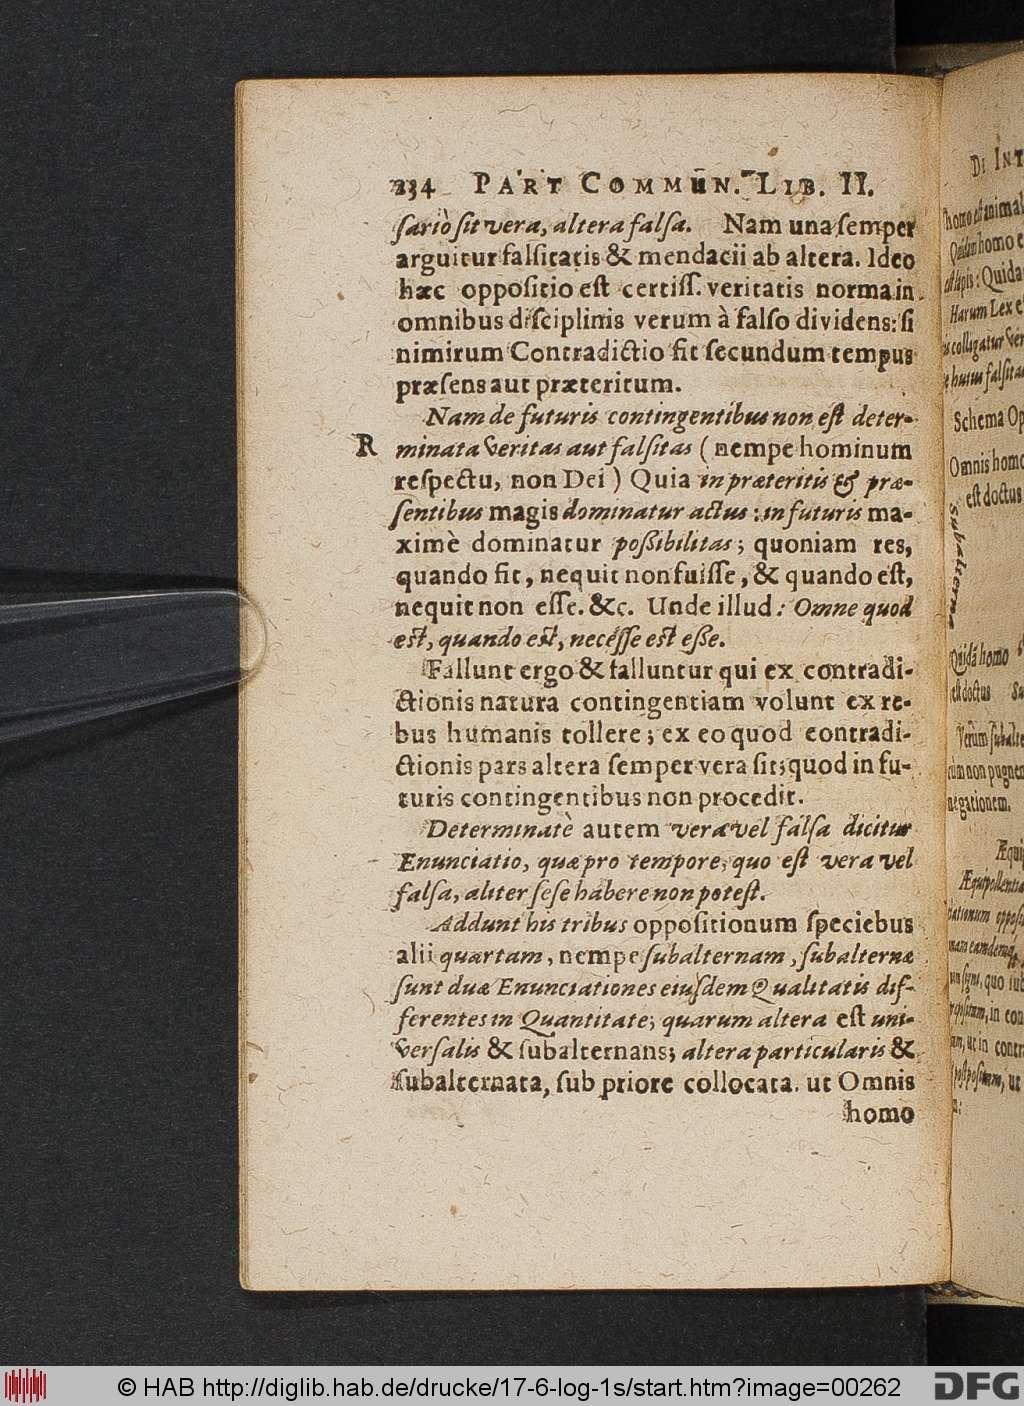 234 PART COMMUN. LIB. II.
ſariò ſit vera, altera falſa. Nam una ſemper
arguitur falſitatis & mendacii ab altera. Ideo
hæc oppoſitio eſt certiſſ. veritatis norma in
omnibus diſciplinis verum à falſo dividens: ſi
nimirum Contradictio fit ſecundum tempus
præſens aut præteritum.
Nam de futuris contingentibus non eſt deter-
R minata veritas aut falſitas (nempe hominum
reſpectu, non Dei) Quia in præteritis & præ-
ſentibus magis dominatur actus: in futuris ma-
ximè dominatur poßibilitas; quoniam res,
quando fit, nequit non fuiſſe, & quando eſt,
nequit non eſſe. &c. Unde illud: Omne quod
eſt, quando eſt, neceſſe eſt eße.
Fallunt ergo & falluntur qui ex contradi-
ctionis natura contingentiam volunt ex re-
bus humanis tollere; ex eo quod contradi-
ctionis pars altera ſemper vera ſit; quod in fu-
turis contingentibus non procedit.
Determinatè autem vera vel falſa dicitur
Enunciatio, quæ pro tempore, quo eſt vera vel
falſa, aliter ſeſe habere non poteſt.
Addunt his tribus oppoſitionum ſpeciebus
alii quartam, nempe ſubalternam, ſubalternæ
ſunt duæ Enunciationes eiuſdem Qualitatis dif-
ferentes in Quantitate; quarum altera eſt uni-
verſalis & ſubalternans; altera particularis &
ſubalternata, ſub priore collocata. ut Omnis
homo
DE INT
homo eſt animal
Quidam homo e
eſt lapis: Quida
Harum Lex e
colligatur ver
huius falſita
Schema Op
Omnis homo
eſt doctus
Subalterna
Quidã homo
eſt doctus
Verùm ſubalte
cùm non pugnen
negationem.
Æqui
Æquipollentia
oppoſi
quo ſub
in con
ut in contra
ut
© HAB http://diglib.hab.de/drucke/17-6-log-1s/start.htm?image=00262
DFG